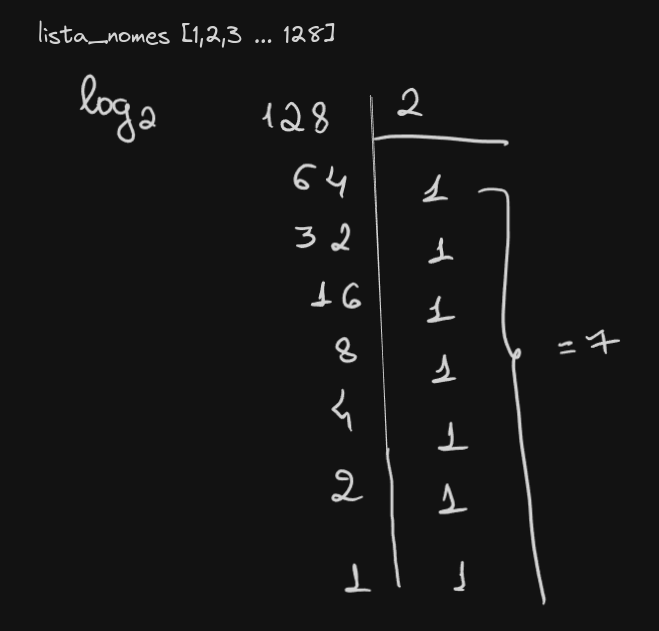 lista_nomes [1,2,3 ... 128]
log2 128 2
64 1
32 1
16 1
8 1 = 7
4 1
2 1
1 1